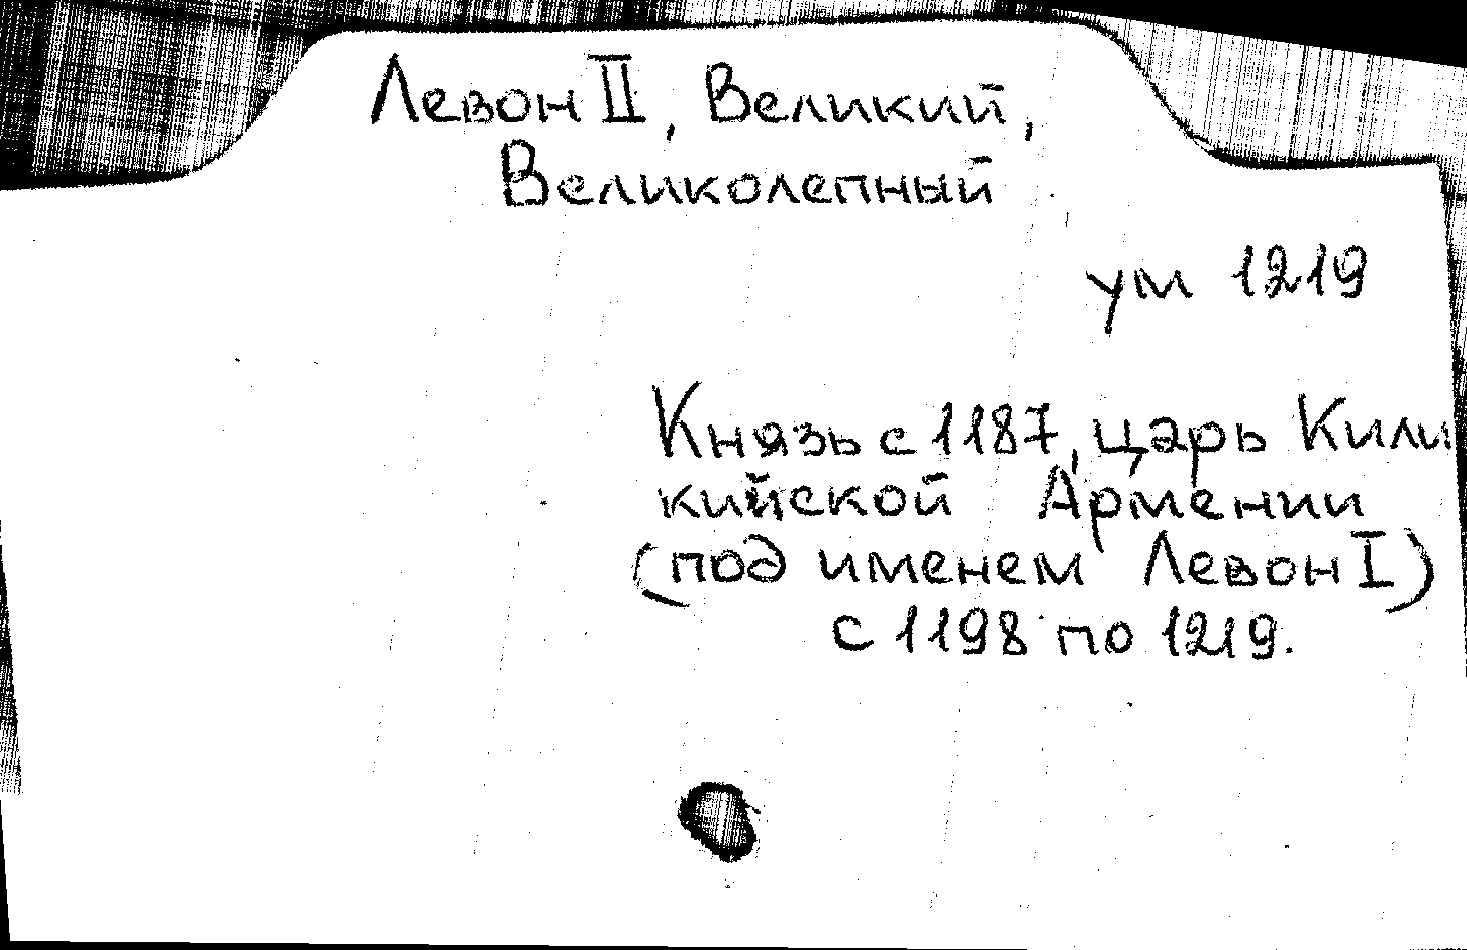 Левон II, Великий,
Великолепный
ум 1219
Князь с 1187, царь Кили
кийской Армении
(под именем Левон I)
с 1198 по 1219.